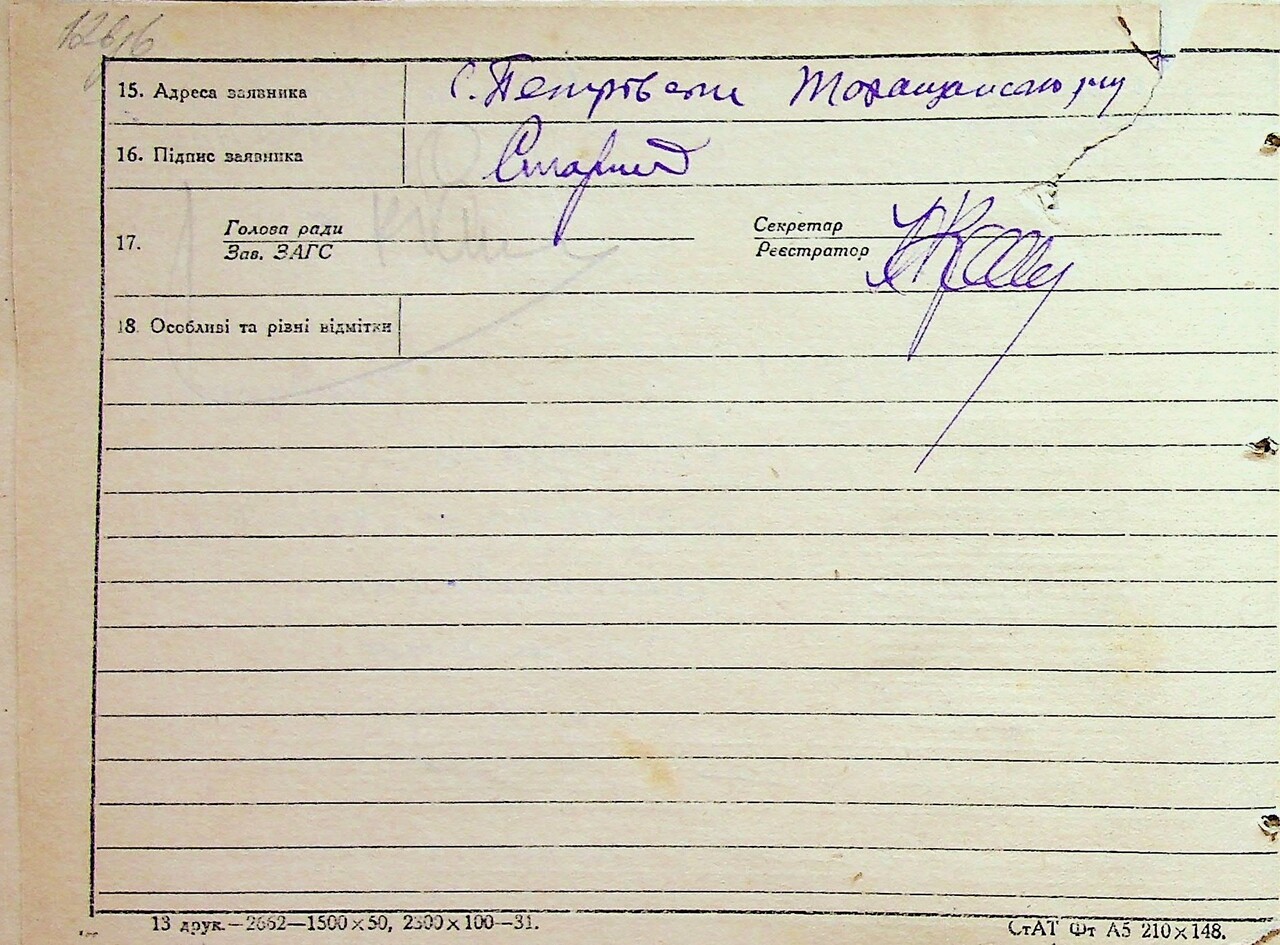 15. Адреса заявника с. Петрівськи Таращанського р-ну
16. Підпис заявника
17. Голова ради Секретар
Зав. ЗАГС Реєстратор
18. Особливі та різні відмітки
13 друк.—2662—1500×50, 2300×100—31.
СтАТ Фт А5 210×148.